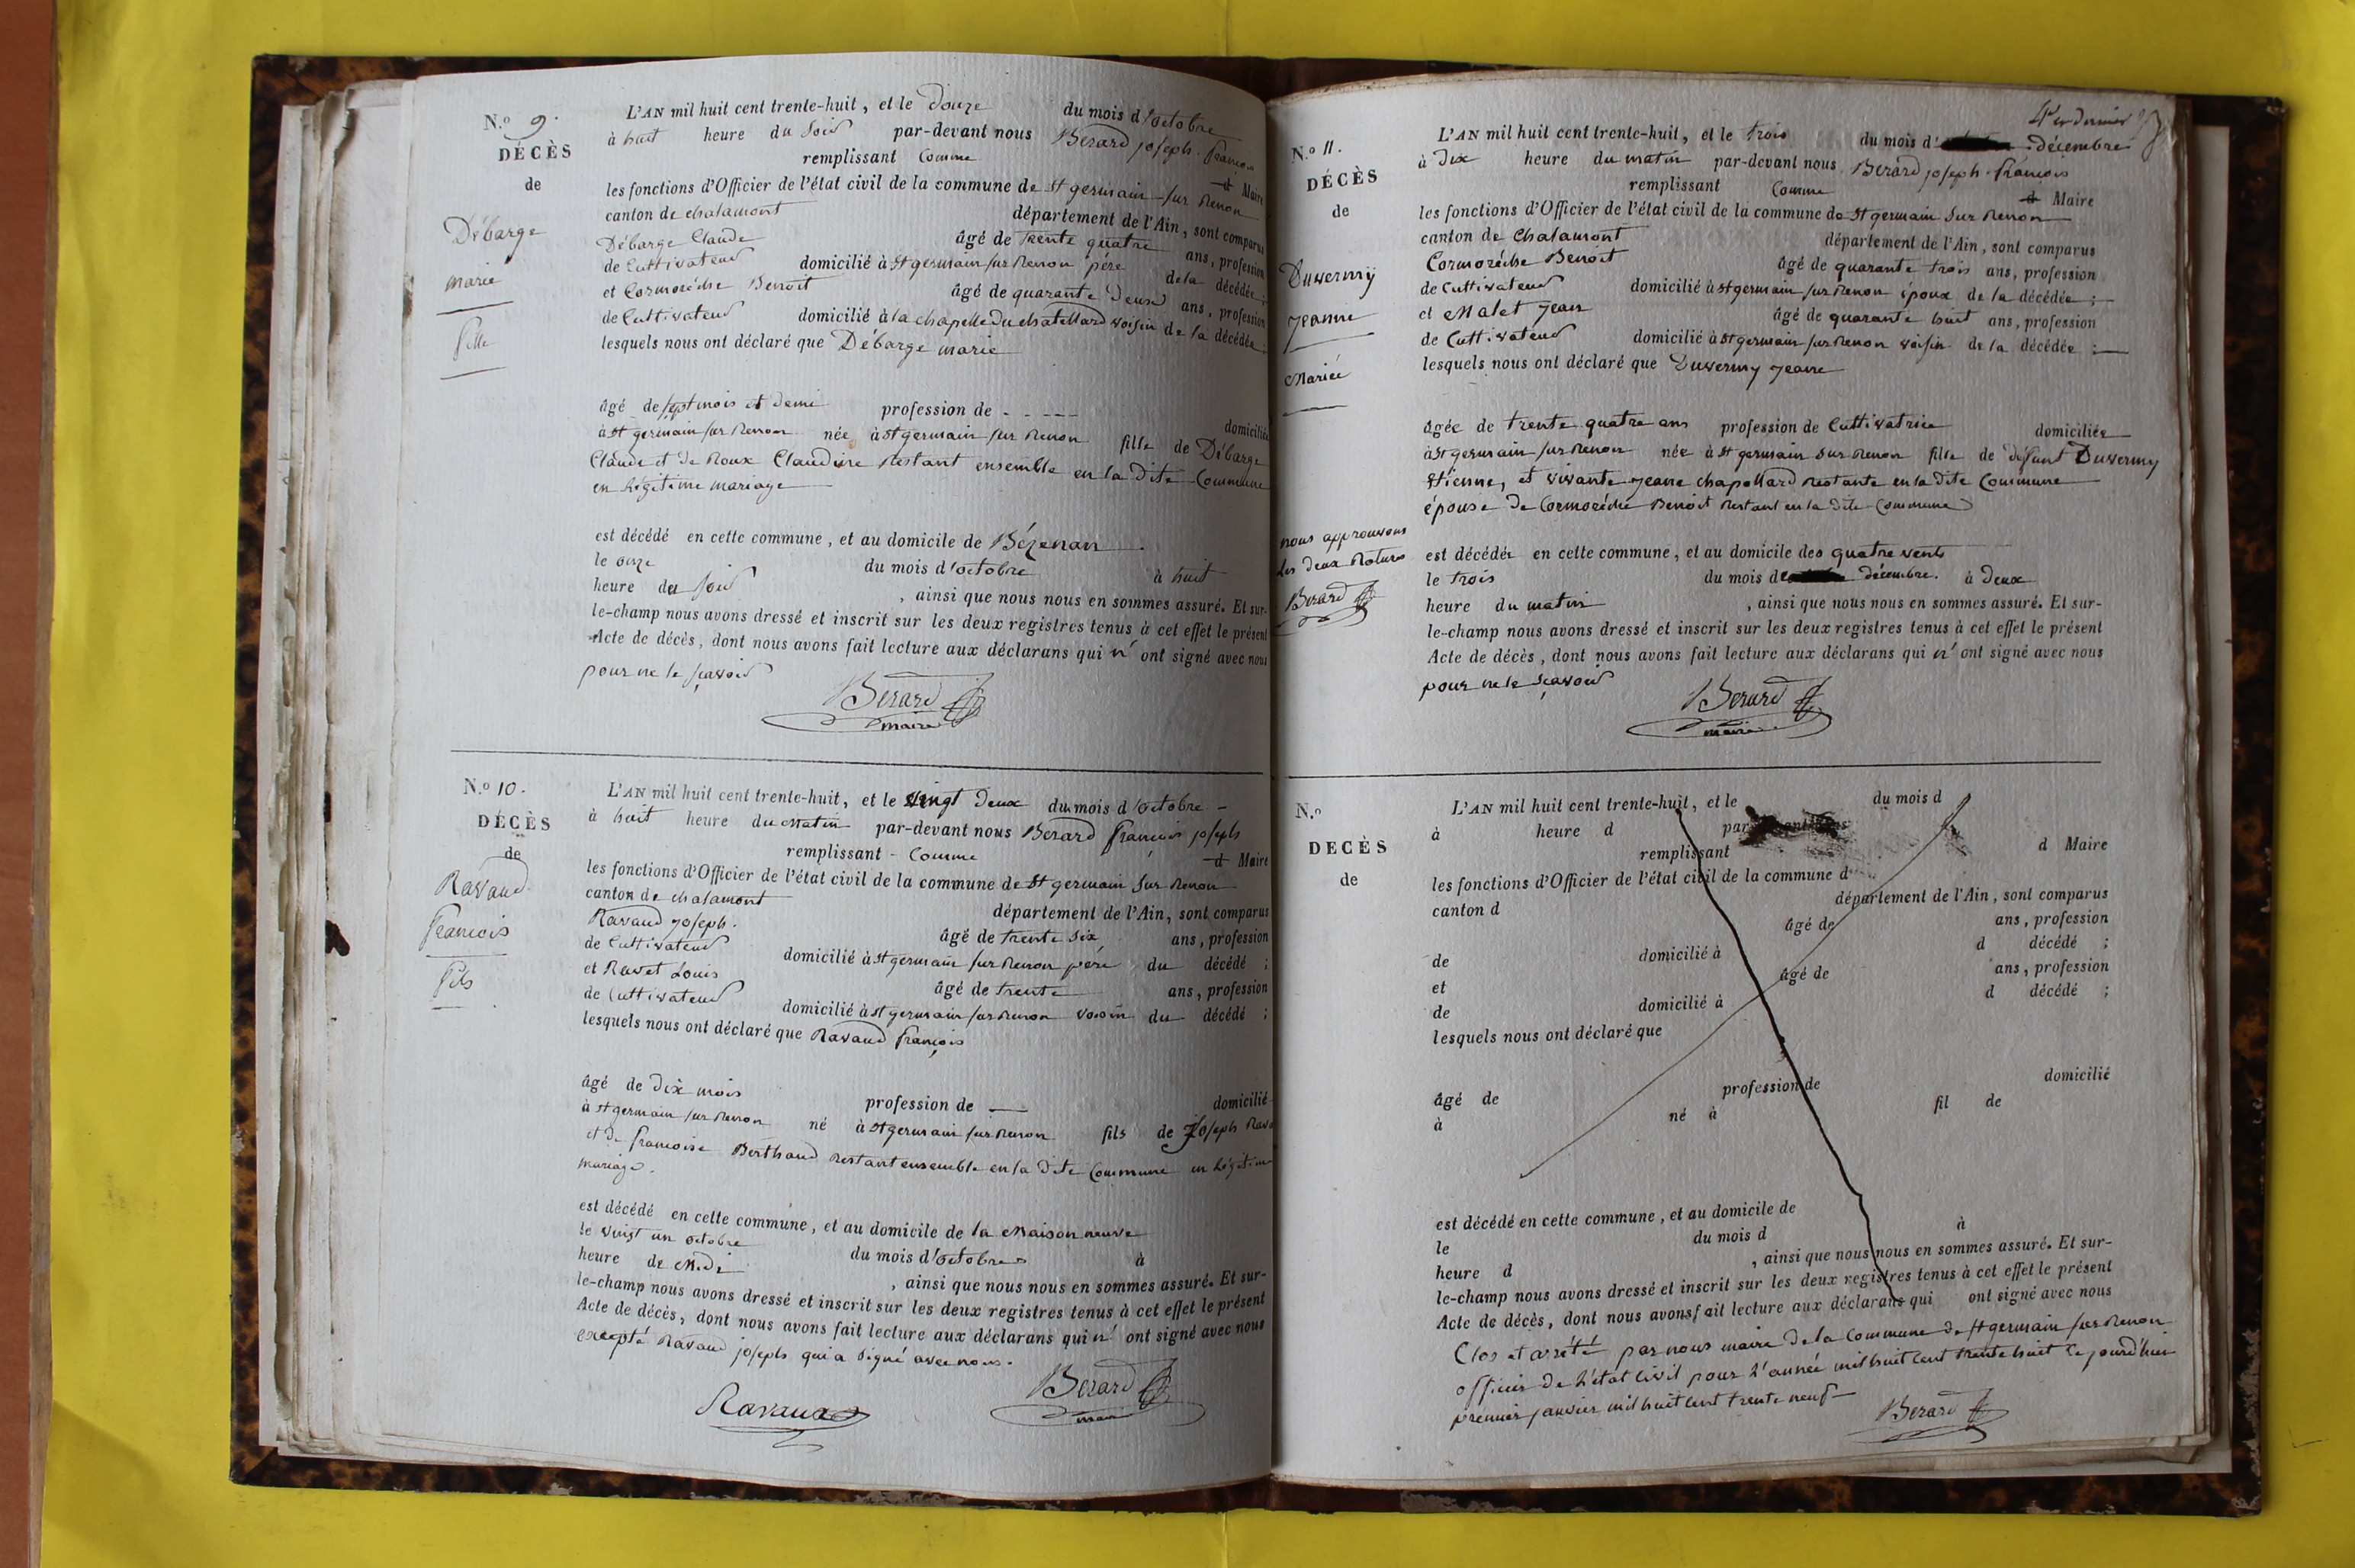 N.o 9.
DÉCÈS
de
Débarge
marie
fille
L'AN mil huit cent trente-huit, et le douze du mois d'octobre
à huit heure du soir par-devant nous Bérard joseph françois
remplissant comme d Maire
les fonctions d'Officier de l'état civil de la commune de St germain sur Renon
canton de chalamont département de l'Ain, sont comparus
Débarge Claude âgé de trente quatre ans, profession
de Cultivateur domicilié à St germain sur Renon père de la décédée ;
et Cormorèche Benoit âgé de quarante deux ans, profession
de Cultivateur domicilié à la chapelle du chatellard voisin de la décédée ;
lesquels nous ont déclaré que Débarge marie
âgé de sept mois et demi profession de - - - - - domiciliée
à St germain sur Renon née à St germain sur Renon fille de Débarge
Claude et de Roux Claudine Restant ensemble en la dite Commune
en légitime mariage
est décédé en cette commune, et au domicile de Bézenan
le onze du mois d'octobre à huit
heure du soir , ainsi que nous nous en sommes assuré. Et sur-
le-champ nous avons dressé et inscrit sur les deux registres tenus à cet effet le présent
Acte de décès, dont nous avons fait lecture aux déclarans qui n' ont signé avec nous
pour ne le sçavoir
Berard
maire
N.o 10.
DÉCÈS
de
Ravaud
françois
fils
L'AN mil huit cent trente-huit, et le vingt deux du mois d'octobre -
à huit heure du matin par-devant nous Berard françois joseph
remplissant - Comme d Maire
les fonctions d'Officier de l'état civil de la commune de St germain sur Renon
canton de chalamont département de l'Ain, sont comparus
Ravaud joseph. âgé de trente six ans, profession
de Cultivateur domicilié à St germain sur Renon père du décédé ;
et Ravet Louis âgé de trente ans, profession
de Cultivateur domicilié à St germain sur Renon voisin du décédé ;
lesquels nous ont déclaré que Ravaud françois
âgé de dix mois profession de — domicilié
à St germain sur Renon né à St germain sur Renon fils de Joseph Rava
et de françoise Berthaud Restant ensemble en la dite Commune en légitime
mariage.
est décédé en cette commune, et au domicile de la Maison neuve
le vingt un octobre du mois d'octobre à
heure de Midi , ainsi que nous nous en sommes assuré. Et sur-
le-champ nous avons dressé et inscrit sur les deux registres tenus à cet effet le présent
Acte de décès, dont nous avons fait lecture aux déclarans qui n' ont signé avec nous
excepté Ravaud joseph qui a signé avec nous.
Ravaud
Berard
maire
4e et dernier
N.o 11.
DÉCÈS
de
Duvermy
Jeanne
Mariée
L'AN mil huit cent trente-huit, et le trois du mois d' décembre
à Dix heure du matin par-devant nous Bérard joseph françois
remplissant Comme d Maire
les fonctions d'Officier de l'état civil de la commune de St germain sur Renon
canton de Chalamont département de l'Ain, sont comparus
Cormorèche Benoit âgé de quarante trois ans, profession
de Cultivateur domicilié à St germain sur Renon époux de la décédée ;
et Malet Jean âgé de quarante huit ans, profession
de Cultivateur domicilié à St germain sur Renon voisin de la décédée ;
lesquels nous ont déclaré que Duvermy Jeane
âgée de trente quatre ans profession de Cultivatrice domiciliée
à St germain sur Renon née à St germain sur Renon fille de défunt Duvermy
Etienne, et vivante Jeane chapollard Restante en la dite Commune
épouse de Cormorèche Benoit Restant en la dite Commune
nous approuvons
les deux Ratures
Berard
est décédée en cette commune, et au domicile des quatre vents
le trois du mois de décembre. à Deux
heure du matin , ainsi que nous nous en sommes assuré. Et sur-
le-champ nous avons dressé et inscrit sur les deux registres tenus à cet effet le présent
Acte de décès, dont nous avons fait lecture aux déclarans qui n' ont signé avec nous
pour ne le sçavoir
Berard
maire
N.o
DECÈS
de
L'AN mil huit cent trente-huit, et le du mois d
à heure d par
remplissant d Maire
les fonctions d'Officier de l'état civil de la commune d
canton d département de l'Ain, sont comparus
âgé de ans, profession
de domicilié à d décédé ;
et âgé de ans, profession
de domicilié à d décédé ;
lesquels nous ont déclaré que
âgé de profession de domicilié
à né à fil de
est décédé en cette commune, et au domicile de
le du mois d à
heure d , ainsi que nous nous en sommes assuré. Et sur-
le-champ nous avons dressé et inscrit sur les deux registres tenus à cet effet le présent
Acte de décès, dont nous avons fait lecture aux déclarans qui ont signé avec nous
Clos et arrêté par nous maire de la Commune de St germain sur Renon
officier de l'état civil pour l'année mil huit cent trente huit ce jourd'hui
premier janvier mil huit cent trente neuf
Berard